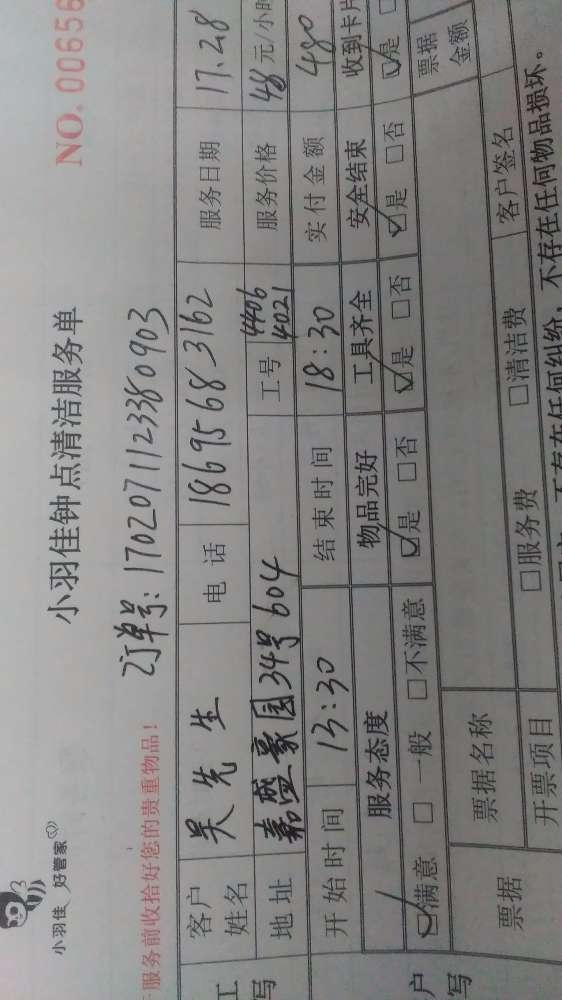 小羽佳 好管家
小羽佳钟点清洁服务单
NO. 00656
服务前收拾好您的贵重物品!
订单号:1702071123380903
客户姓名 吴先生 电话 18695683162 服务日期 17.2.8
地址 嘉盛豪园34号604 工号 4406 4021 服务价格 48元/小时
开始时间 13:30 结束时间 18:30 实付金额 480
服务态度 物品完好 工具齐全 安全结束 收到卡片
☑满意 □一般 □不满意 ☑是 □否 ☑是 □否 ☑是 □否 ☑是
票据 票据名称 票据金额
开票项目 □服务费 □清洁费 客户签名
不存在任何纠纷,不存在任何物品损坏。